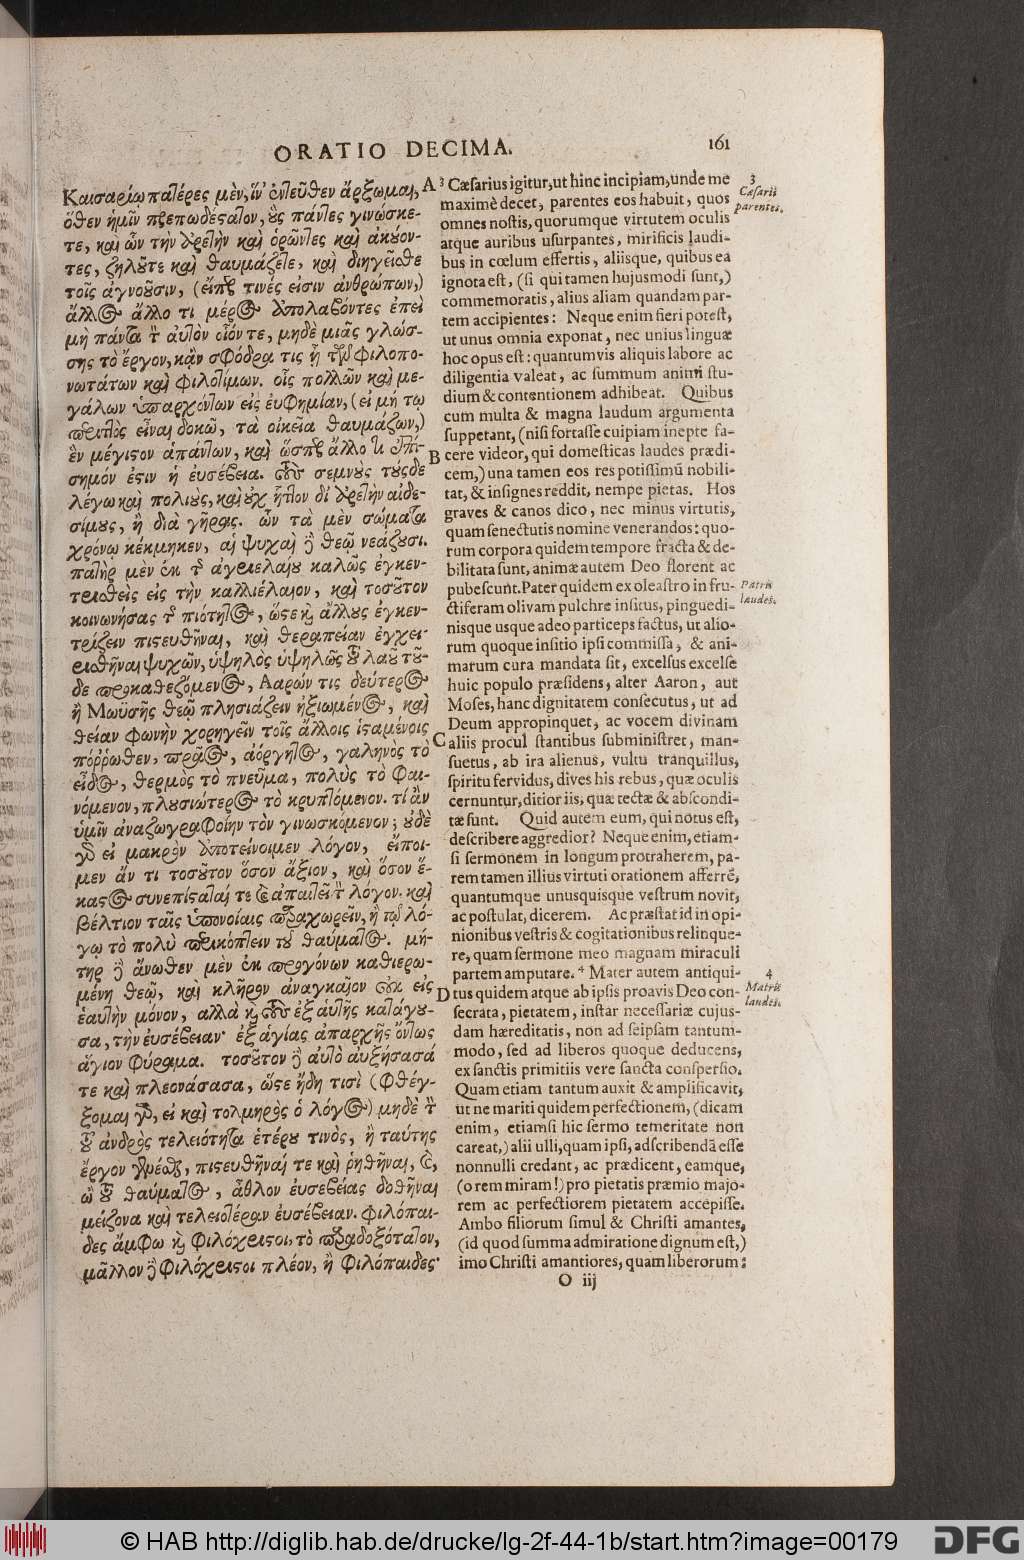 ORATIO DECIMA.
161
Καισαρίῳ πατέρες μὲν, ἵν' ἐντεῦθεν ἄρξωμαι,
ὅθεν ἡμῖν πρεπωδέστατον, οὓς πάντες γινώσκε-
τε, καὶ ὧν τὴν ἀρετὴν καὶ ὁρῶντες καὶ ἀκούον-
τες, ζηλοῦτε καὶ θαυμάζετε, καὶ διηγεῖσθε
τοῖς ἀγνοοῦσιν, (εἴπερ τινές εἰσιν ἀνθρώπων,)
ἄλλος ἄλλο τι μέρος ἀπολαβόντες ἐπεὶ
μὴ πάντα τ αὐτὸν οἷόν τε, μηδὲ μιᾶς γλώσ-
σης τὸ ἔργον, κᾂν σφόδρα τις ᾖ τῶν φιλοπο-
νωτάτων καὶ φιλοτίμων. οἷς πολλῶν καὶ με-
γάλων ὑπαρχόντων εἰς εὐφημίαν, (εἰ μή τῳ
περιττὸς εἶναι δοκῶ, τὰ οἰκεῖα θαυμάζων,)
ἓν μέγιστον ἁπάντων, καὶ ὥσπερ ἄλλο τι ἐπί-
σημόν ἐστιν ἡ εὐσέβεια. τοὺς σεμνοὺς τούσδε
λέγω καὶ πολιοὺς, καὶ οὐχ ἧττον δι' ἀρετὴν αἰδε-
σίμους, ἢ διὰ γῆρας. ὧν τὰ μὲν σώματα
χρόνῳ κέκμηκεν, αἱ ψυχαὶ δὲ θεῷ νεάζουσι.
πατὴρ μὲν ἐκ τῆς ἀγριελαίου καλῶς ἐγκεν-
τρισθεὶς εἰς τὴν καλλιέλαιον, καὶ τοσοῦτον
κοινωνήσας τῆς πιότητος, ὥστε καὶ ἄλλους ἐγκεν-
τρίζειν πιστευθῆναι, καὶ θεραπείαν ἐγχει-
ρισθῆναι ψυχῶν, ὑψηλὸς ὑψηλῶς τοῦ λαοῦ τοῦ-
δε προκαθεζόμενος, Ααρών τις δεύτερος
ἢ Μωϋσῆς θεῷ πλησιάζειν ἠξιωμένος, καὶ
θείαν φωνὴν χορηγεῖν τοῖς ἄλλοις ἱσταμένοις
πόῤῥωθεν, πρᾶος, ἀόργητος, γαληνὸς τὸ
εἶδος, θερμὸς τὸ πνεῦμα, πολὺς τὸ φαι-
νόμενον, πλουσιώτερος τὸ κρυπτόμενον. τί ἂν
ὑμῖν ἀναζωγραφοίην τὸν γινωσκόμενον; οὐδὲ
γὰρ εἰ μακρὸν ἀποτείνοιμεν λόγον, εἴποι-
μεν ἄν τι τοσοῦτον ὅσον ἄξιον, καὶ ὅσον ἕ-
καστος συνεπίσταταί τε καὶ ἀπαιτεῖ τὸν λόγον. καὶ
βέλτιον ταῖς ὑπονοίαις παραχωρεῖν, ἢ τῷ λό-
γῳ τὸ πολὺ περικόπτειν τοῦ θαύματος. μή-
τηρ δὲ ἄνωθεν μὲν ἐκ προγόνων καθιερω-
μένη θεῷ, καὶ κλῆρον ἀναγκαῖον οὐκ εἰς
ἑαυτὴν μόνον, ἀλλὰ καὶ τοὺς ἐξ αὑτῆς κατάγου-
σα, τὴν εὐσέβειαν· ἐξ ἁγίας ἀπαρχῆς ὄντως
ἅγιον φύραμα. τοσοῦτον δὲ αὐτὸ αὐξήσασά
τε καὶ πλεονάσασα, ὥστε ἤδη τισὶ (φθέγ-
ξομαι γὰρ, εἰ καὶ τολμηρὸς ὁ λόγος) μηδὲ τὴν
τοῦ ἀνδρὸς τελειότητα ἑτέρου τινὸς, ἢ ταύτης
ἔργον γενέσθαι, πιστευθῆναί τε καὶ ῥηθῆναι, καὶ,
ὢ τοῦ θαύματος, ἆθλον εὐσεβείας δοθῆναι
μείζονα καὶ τελειοτέραν εὐσέβειαν. φιλόπαι-
δες ἄμφω καὶ φιλόχριστοι, τὸ παραδοξότατον,
μᾶλλον δὲ φιλόχριστοι πλέον, ἢ φιλόπαιδες·
A
B
C
D
3 Cæsarius igitur, ut hinc incipiam, unde me
maximè decet, parentes eos habuit, quos
omnes nostis, quorumque virtutem oculis
atque auribus usurpantes, mirificis laudi-
bus in cœlum effertis, aliisque, quibus ea
ignota est, (si qui tamen hujusmodi sunt,)
commemoratis, alius aliam quandam par-
tem accipientes: Neque enim fieri potest,
ut unus omnia exponat, nec unius linguæ
hoc opus est: quantumvis aliquis labore ac
diligentia valeat, ac summum animi stu-
dium & contentionem adhibeat. Quibus
cum multa & magna laudum argumenta
suppetant, (nisi fortasse cuipiam inepte fa-
cere videor, qui domesticas laudes prædi-
cem,) una tamen eos res potissimũ nobili-
tat, & insignes reddit, nempe pietas. Hos
graves & canos dico, nec minus virtutis,
quam senectutis nomine venerandos: quo-
rum corpora quidem tempore fracta & de-
bilitata sunt, animæ autem Deo florent ac
pubescunt. Pater quidem ex oleastro in fru-
ctiferam olivam pulchre insitus, pinguedi-
nisque usque adeo particeps factus, ut alio-
rum quoque insitio ipsi commissa, & ani-
marum cura mandata sit, excelsus excelse
huic populo præsidens, alter Aaron, aut
Moses, hanc dignitatem consecutus, ut ad
Deum appropinquet, ac vocem divinam
aliis procul stantibus subministret, man-
suetus, ab ira alienus, vultu tranquillus,
spiritu fervidus, dives his rebus, quæ oculis
cernuntur, ditior iis, quæ tectæ & abscondi-
tæ sunt. Quid autem eum, qui notus est,
describere aggredior? Neque enim, etiam-
si sermonem in longum protraherem, pa-
rem tamen illius virtuti orationem afferrẽ,
quantumque unusquisque vestrum novit,
ac postulat, dicerem. Ac præstat id in opi-
nionibus vestris & cogitationibus relinque-
re, quam sermone meo magnam miraculi
partem amputare. 4 Mater autem antiqui-
tus quidem atque ab ipsis proavis Deo con-
secrata, pietatem, instar necessariæ cujus-
dam hæreditatis, non ad seipsam tantum-
modo, sed ad liberos quoque deducens,
ex sanctis primitiis vere sancta conspersio.
Quam etiam tantum auxit & amplificavit,
ut ne mariti quidem perfectionem, (dicam
enim, etiamsi hic sermo temeritate non
careat,) alii ulli, quam ipsi, adscribendã esse
nonnulli credant, ac prædicent, eamque,
(o rem miram!) pro pietatis præmio majo-
rem ac perfectiorem pietatem accepisse.
Ambo filiorum simul & Christi amantes,
(id quod summa admiratione dignum est,)
imo Christi amantiores, quam liberorum:
3
Cæsarii
parentes.
Patris
laudes.
4
Matris
laudes.
O iij
© HAB http://diglib.hab.de/drucke/lg-2f-44-1b/start.htm?image=00179
DFG